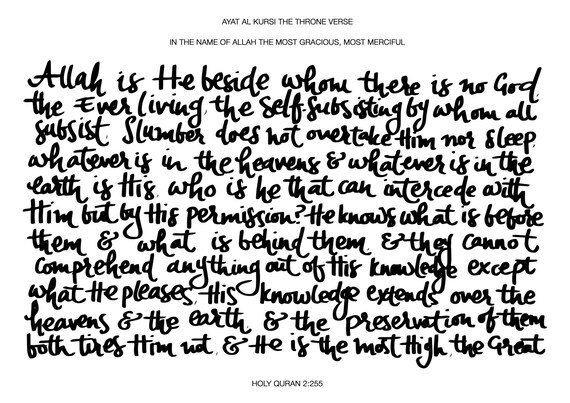 AYAT AL KURSI THE THRONE VERSE
IN THE NAME OF ALLAH THE MOST GRACIOUS, MOST MERCIFUL
Allah is He beside whom there is no God.
the Ever living, the Self-Subsisting by whom all
subsist. Slumber does not overtake Him nor Sleep.
whatever is in the heavens & whatever is in the
earth is His. who is he that can intercede with
Him but by His permission? He knows what is before
them & what is behind them. & they cannot
comprehend anything out of His knowledge except
what He pleases, His knowledge extends over the
heavens & the earth, & the preservation of them
both tires Him not. & He is the most High, the Great
HOLY QURAN 2:255